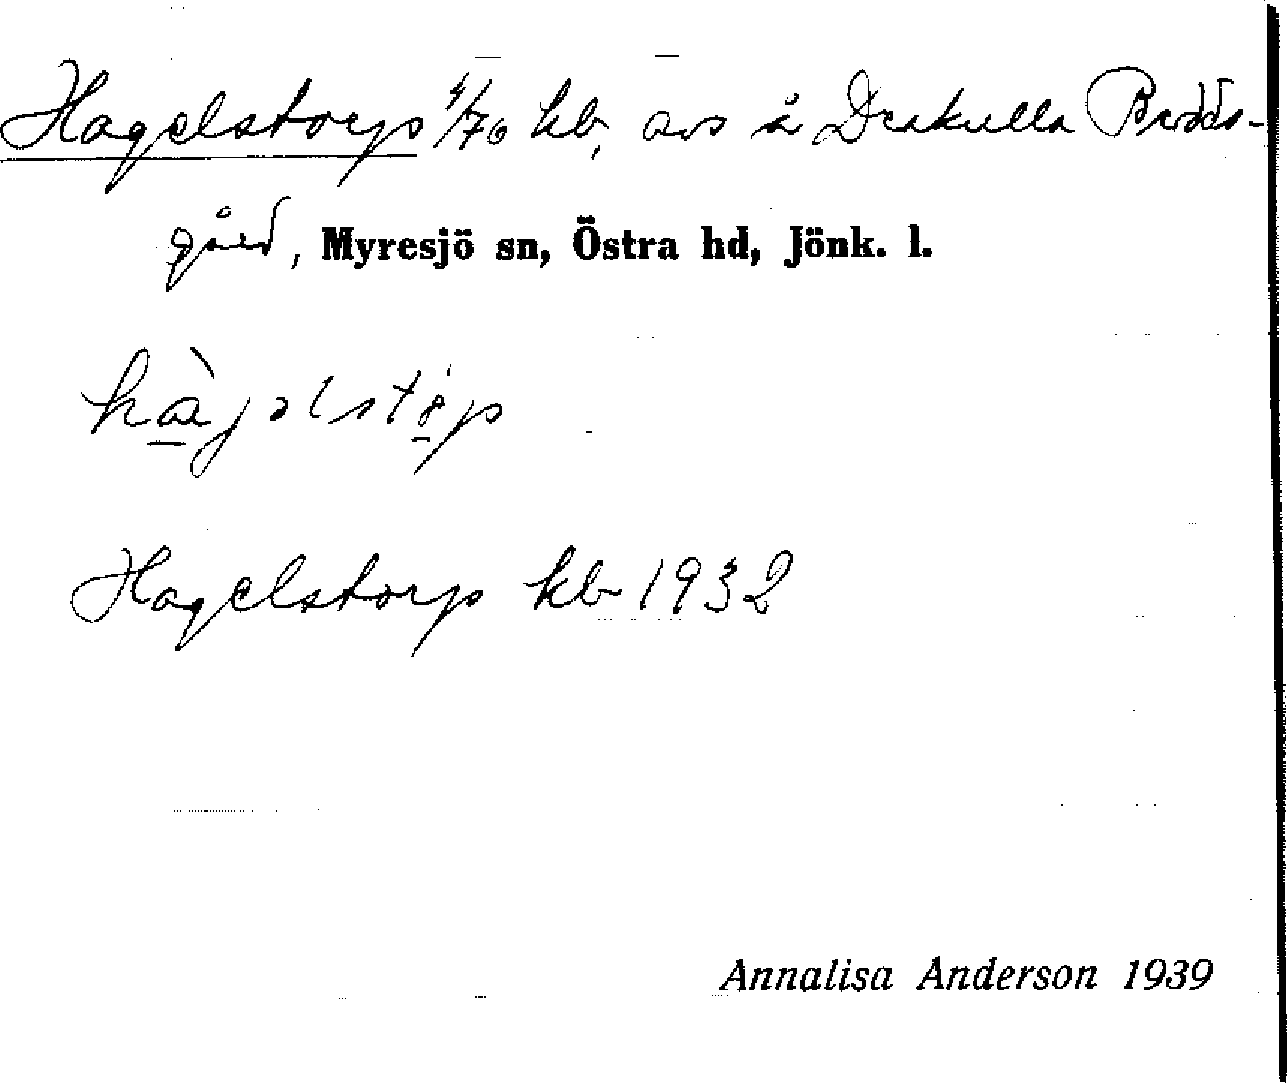 Hagelstorp 1/70 kb, avs å Drakulla Prästs-
gård, Myresjö sn, Östra hd, Jönk. l.
Hagelstorp kb 1932
Annalisa Anderson 1939